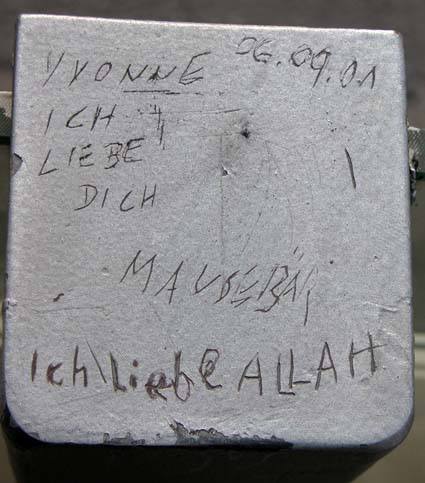 YVONNE 06.09.01
ICH
LIEBE
DICH
MAUSEBÄR
Ich liebe ALLAH